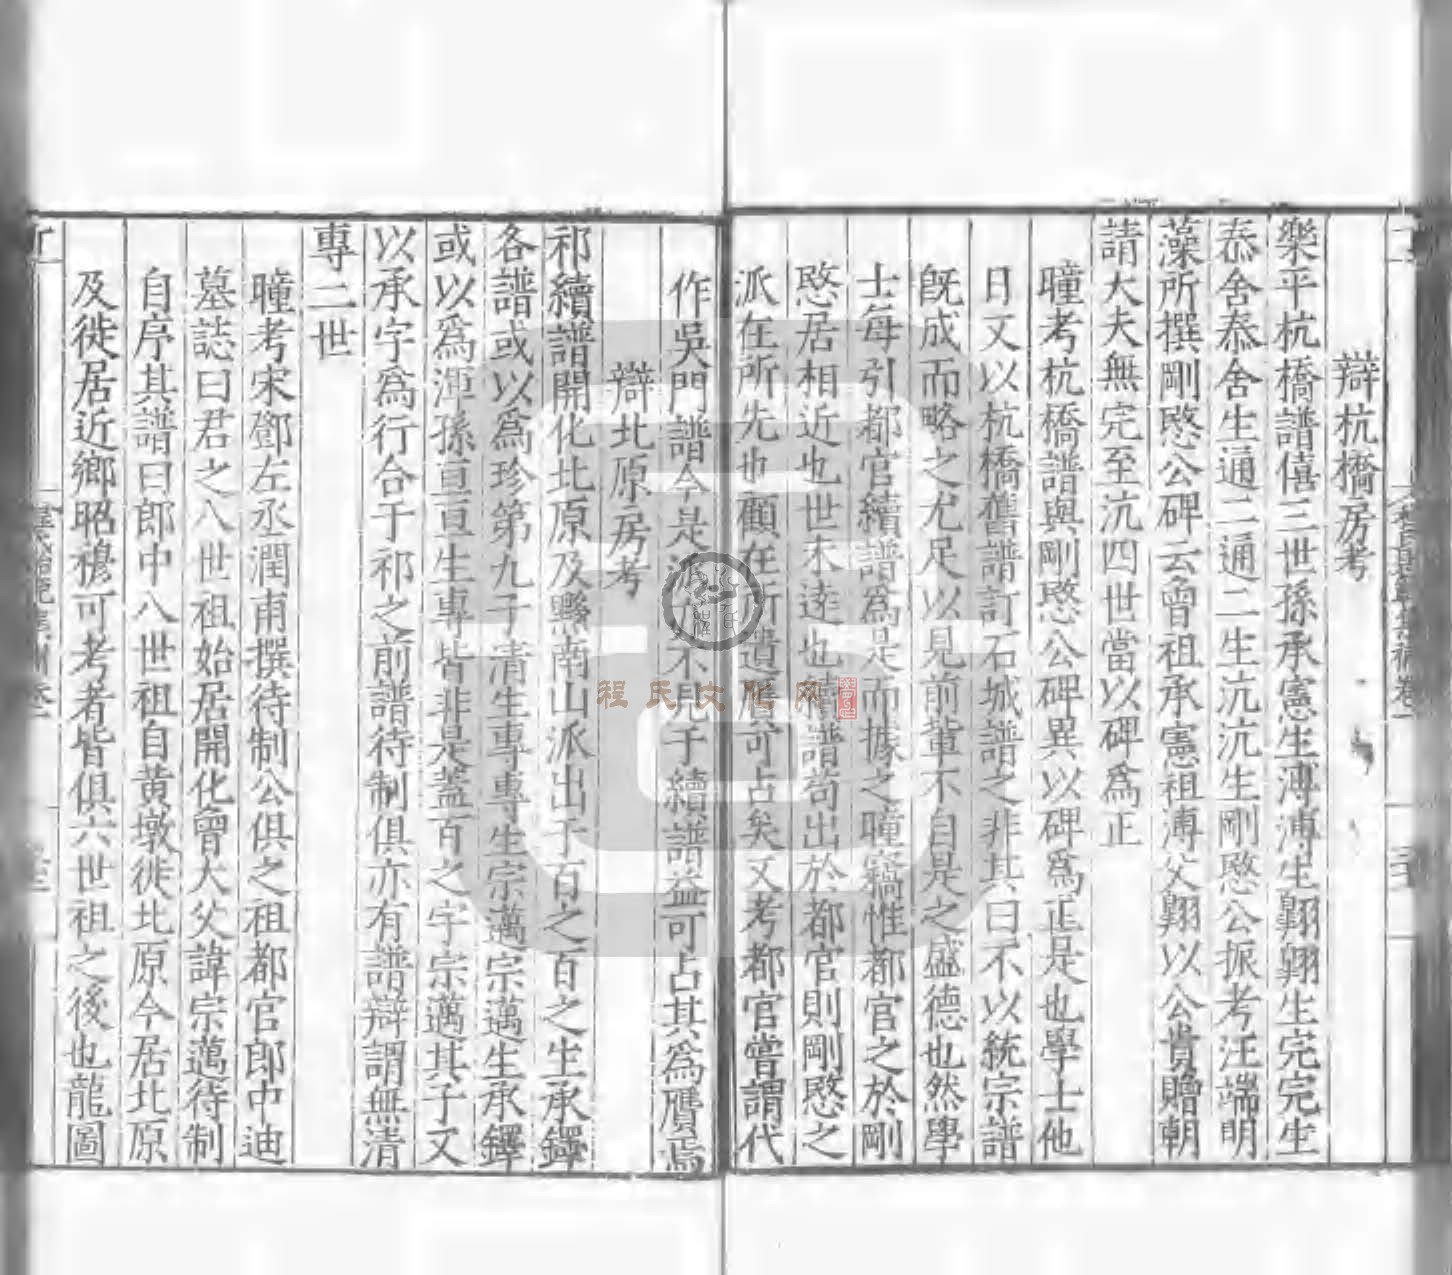 辯杭橋房考
樂平杭橋譜僖三世孫承憲生溥溥生翺翺生完完生
忝舍忝舍生通二通二生沆沆生剛愍公振考汪端明
藻所撰剛愍公碑云曾祖承憲祖溥父翺以公貴贈朝
請大夫無完至沆四世當以碑為正
曈考杭橋譜與剛愍公碑異以碑為正是也學士他
日又以杭橋舊譜訂石城譜之非其曰不以統宗譜
旣成而略之尤足以見前輩不自是之盛德也然學
士每引都官續譜爲是而據之曈竊惟都官之於剛
愍居相近也世未逺也續譜茍出於都官則剛愍之
派在所先也顧在所遺贋可占矣又考都官嘗謂代
作吳門譜今是派 不見于續譜益可占其為贋焉
辯北原房考
祁續譜開化北原及黟南山派出于百之百之生承鐸
各譜或以為珍第九子清生專專生宗邁宗邁生承鐸
或以爲渾孫亶亶生專皆非是蓋百之字宗邁其子又
以承字爲行合于祁之前譜待制俱亦有譜辯謂無清
專二世
曈考宋鄧左丞潤甫撰待制公俱之祖都官郎中迪
墓誌曰君之八世祖始居開化曾大父諱宗邁待制
自序其譜曰郎中八世祖自黃墩徙北原今居北原
及徙居近鄉昭穆可考者皆俱六世祖之後也龍圖
程氏文化网